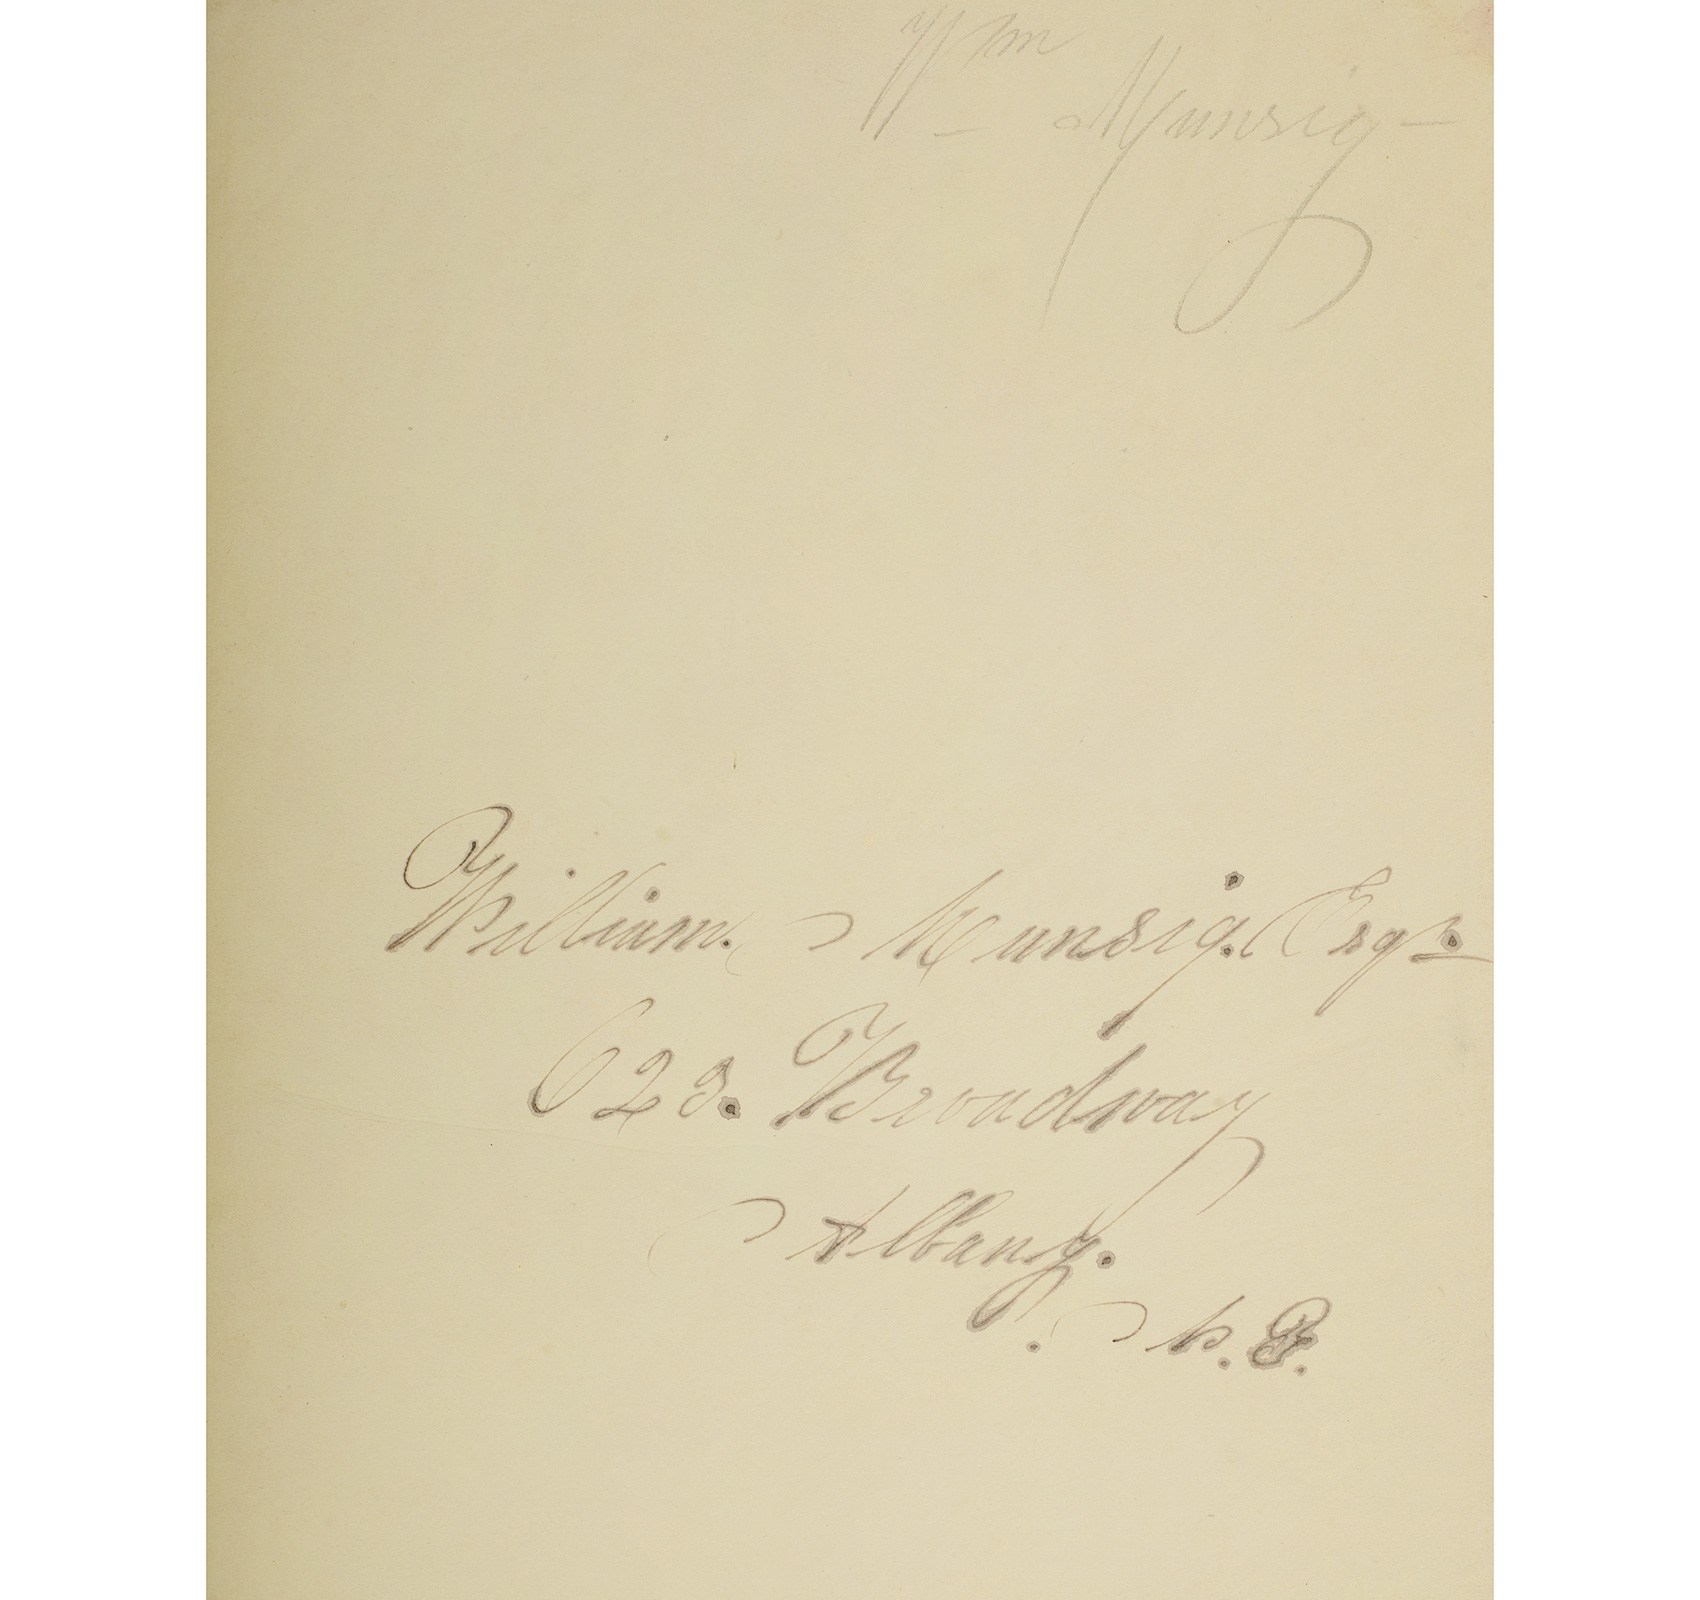 Wm
Munsig
William. Munsig. Esqr.
628. Broadway
Albany.